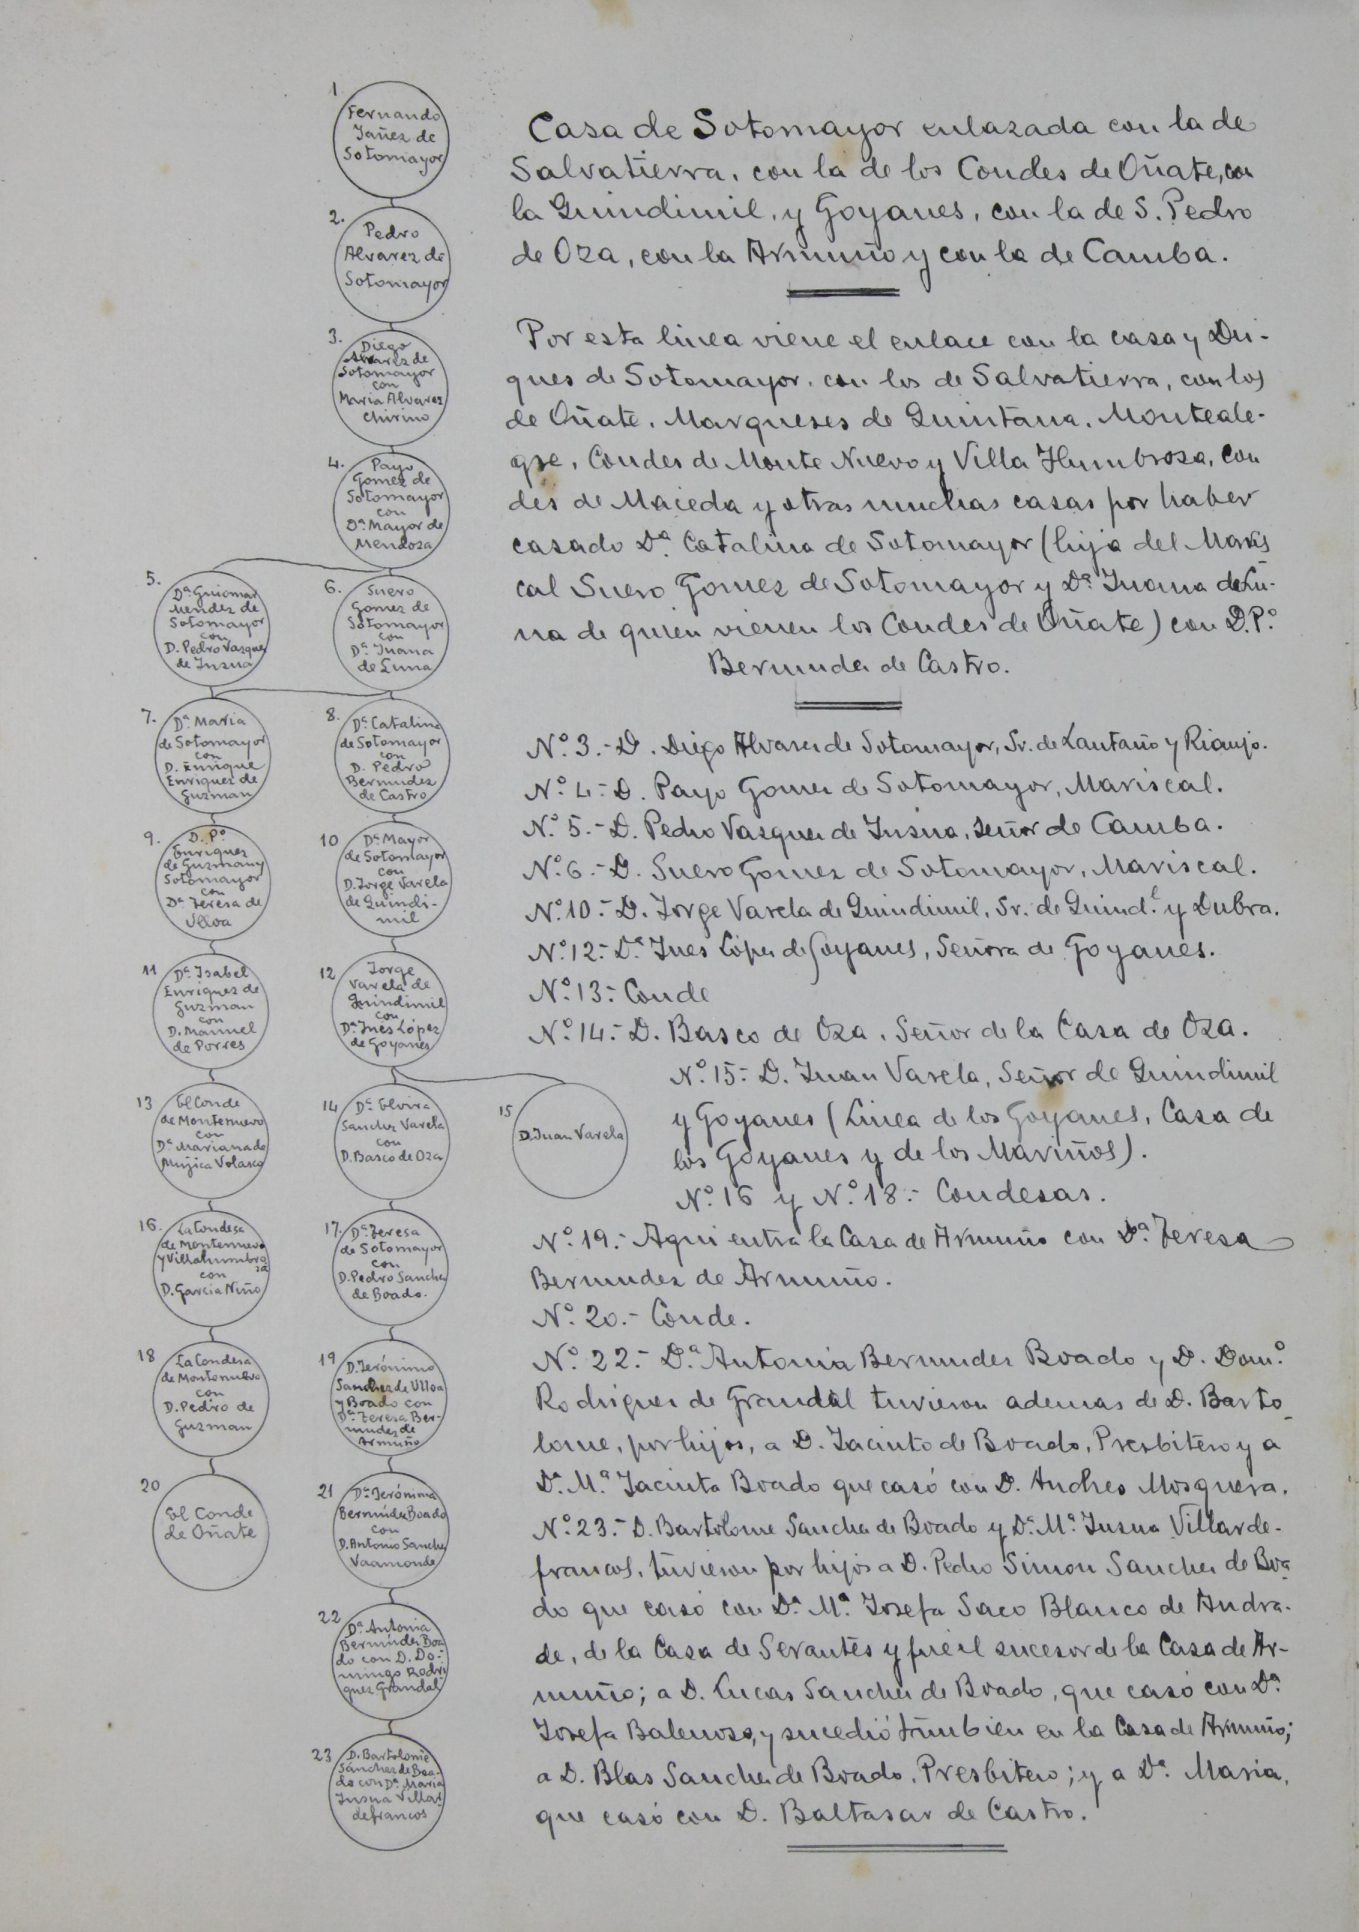 1
Fernando
Iañez de
Sotomayor
2.
Pedro
Alvarez de
Sotomayor
3.
Diego
Alvarez de
Sotomayor
con
Maria Alvarez
Chirino
4.
Payo
Gomez de
Sotomayor
con
Dª Mayor de
Mendoza
5.
Dª Guiomar
Mendez de
Sotomayor
con
D. Pedro Vasquez
de Insua
6.
Suero
Gomez de
Sotomayor
con
Dª Juana
de Luna
7.
Dª Maria
de Sotomayor
con
D. Enrique
Enriquez de
Guzman
8.
Dª Catalina
de Sotomayor
con
D. Pedro
Bermudez
de Castro
9.
D. Pº
Enriquez
de Guzman y
Sotomayor
con
Dª Teresa de
Ulloa
10
Dª Mayor
de Sotomayor
con
D. Jorge Varela
de Guindi-
mil
11
Dª Isabel
Enriquez de
Guzman
con
D. Manuel
de Porres
12
Jorge
Varela de
Guindimil
con
Dª Inés López
de Goyanes
13
El Conde
de Montenuevo
con
Dª Mariana de
Mujica Velasco
14
Dª Elvira
Sanchez Varela
con
D. Basco de Oza
15
D. Juan Varela
16.
La Condesa
de Montenuevo
y Villahumbro
sa
con
D. Garcia Niño
17.
Dª Teresa
de Sotomayor
con
D. Pedro Sanchez
de Boado.
18
La Condesa
de Montenuevo
con
D. Pedro de
Guzman
19
D. Jerónimo
Sanchez de Ulloa
y Boado con
Dª Teresa Ber-
mudez de
Armuño
20
El Conde
de Oñate
21
Dª Jerónima
Bermúdez Boado
con
D. Antonio Sanchez
Vaamonde
22
Dª Antonia
Bermúdez Boa
do con D. Do-
mingo Rodri
guez Grandal
23
D. Bartolomé
Sánchez de Boa-
do con Dª Maria
Insua Villar
defrancos
Casa de Sotomayor enlazada con la de
Salvatierra, con la de los Condes de Oñate, con
la Guindimil, y Goyanes, con la de S. Pedro
de Oza, con la Armuño y con la de Camba.
Por esta linea viene el enlace con la casa y Du-
ques de Sotomayor, con los de Salvatierra, con los
de Oñate, Marqueses de Quintana, Monteale-
gre, Condes de Monte Nuevo y Villa Humbrosa, Con
des de Maceda y otras muchas casas por haber
casado Dª Catalina de Sotomayor (hija del Maris
cal Suero Gomez de Sotomayor y Dª Juana de Lu-
na de quien vienen los Condes de Oñate) con D. Pº
Bermudez de Castro.
Nº 3.- D. Diego Alvarez de Sotomayor, Sr. de Lantaño y Rianjo.
Nº 4.- D. Payo Gomez de Sotomayor, Mariscal.
Nº 5.- D. Pedro Vasquez de Insua, Señor de Camba.
Nº 6.- D. Suero Gomez de Sotomayor, Mariscal.
Nº 10.- D. Jorge Varela de Guindimil, Sr. de Guind.l y Dubra.
Nº 12.- Dª Ines López de Goyanes, Señora de Goyanes.
Nº 13.- Conde
Nº 14.- D. Basco de Oza, Señor de la Casa de Oza.
Nº 15.- D. Juan Varela, Señor de Guindimil
y Goyanes (Linea de los Goyanes, Casa de
los Goyanes y de los Mariños).
Nº 16 y Nº 18.- Condesas.
Nº 19.- Aqui entra la Casa de Armuño con Dª Teresa
Bermudez de Armuño.
Nº 20.- Conde.
Nº 22.- Dª Antonia Bermudez Boado y D. Domº
Rodriguez de Grandal tuvieron ademas de D. Barto-
lome, por hijos, a D. Jacinto de Boado, Presbitero y a
Dª Mª Jacinta Boado que casó con D. Andres Mosquera.
Nº 23.- D. Bartolome Sanchez de Boado y Dª Mª Insua Villarde-
francos, tuvieron por hijos a D. Pedro Simon Sanchez de Boa-
do que casó con Dª Mª Josefa Saco Blanco de Andra-
de, de la Casa de Serantes y fué el sucesor de la Casa de Ar-
muño; a D. Lucas Sanchez de Boado, que casó con Dª
Josefa Balenosa, y sucedió tambien en la Casa de Armuño;
a D. Blas Sanchez de Boado, Presbitero; y a Dª Maria,
que casó con D. Baltasar de Castro.